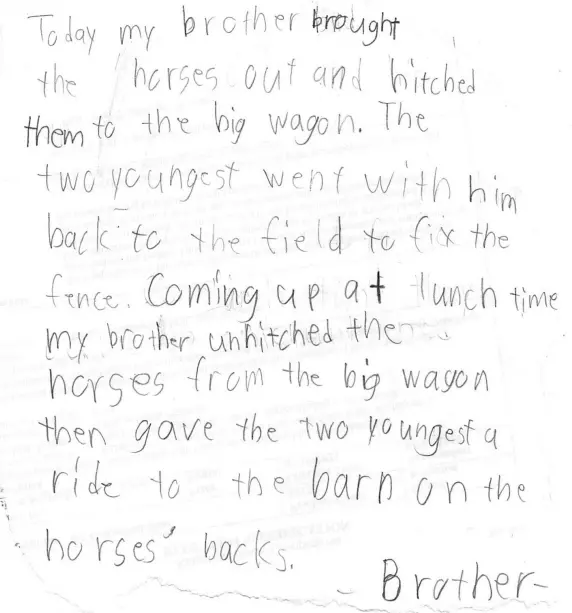 Today my brother brought
the horses out and hitched
them to the big wagon. The
two youngest went with him
back to the field to fix the
fence. Coming up at lunch time
my brother unhitched the
horses from the big wagon
then gave the two youngest a
ride to the barn on the
horses' backs.
Brother-